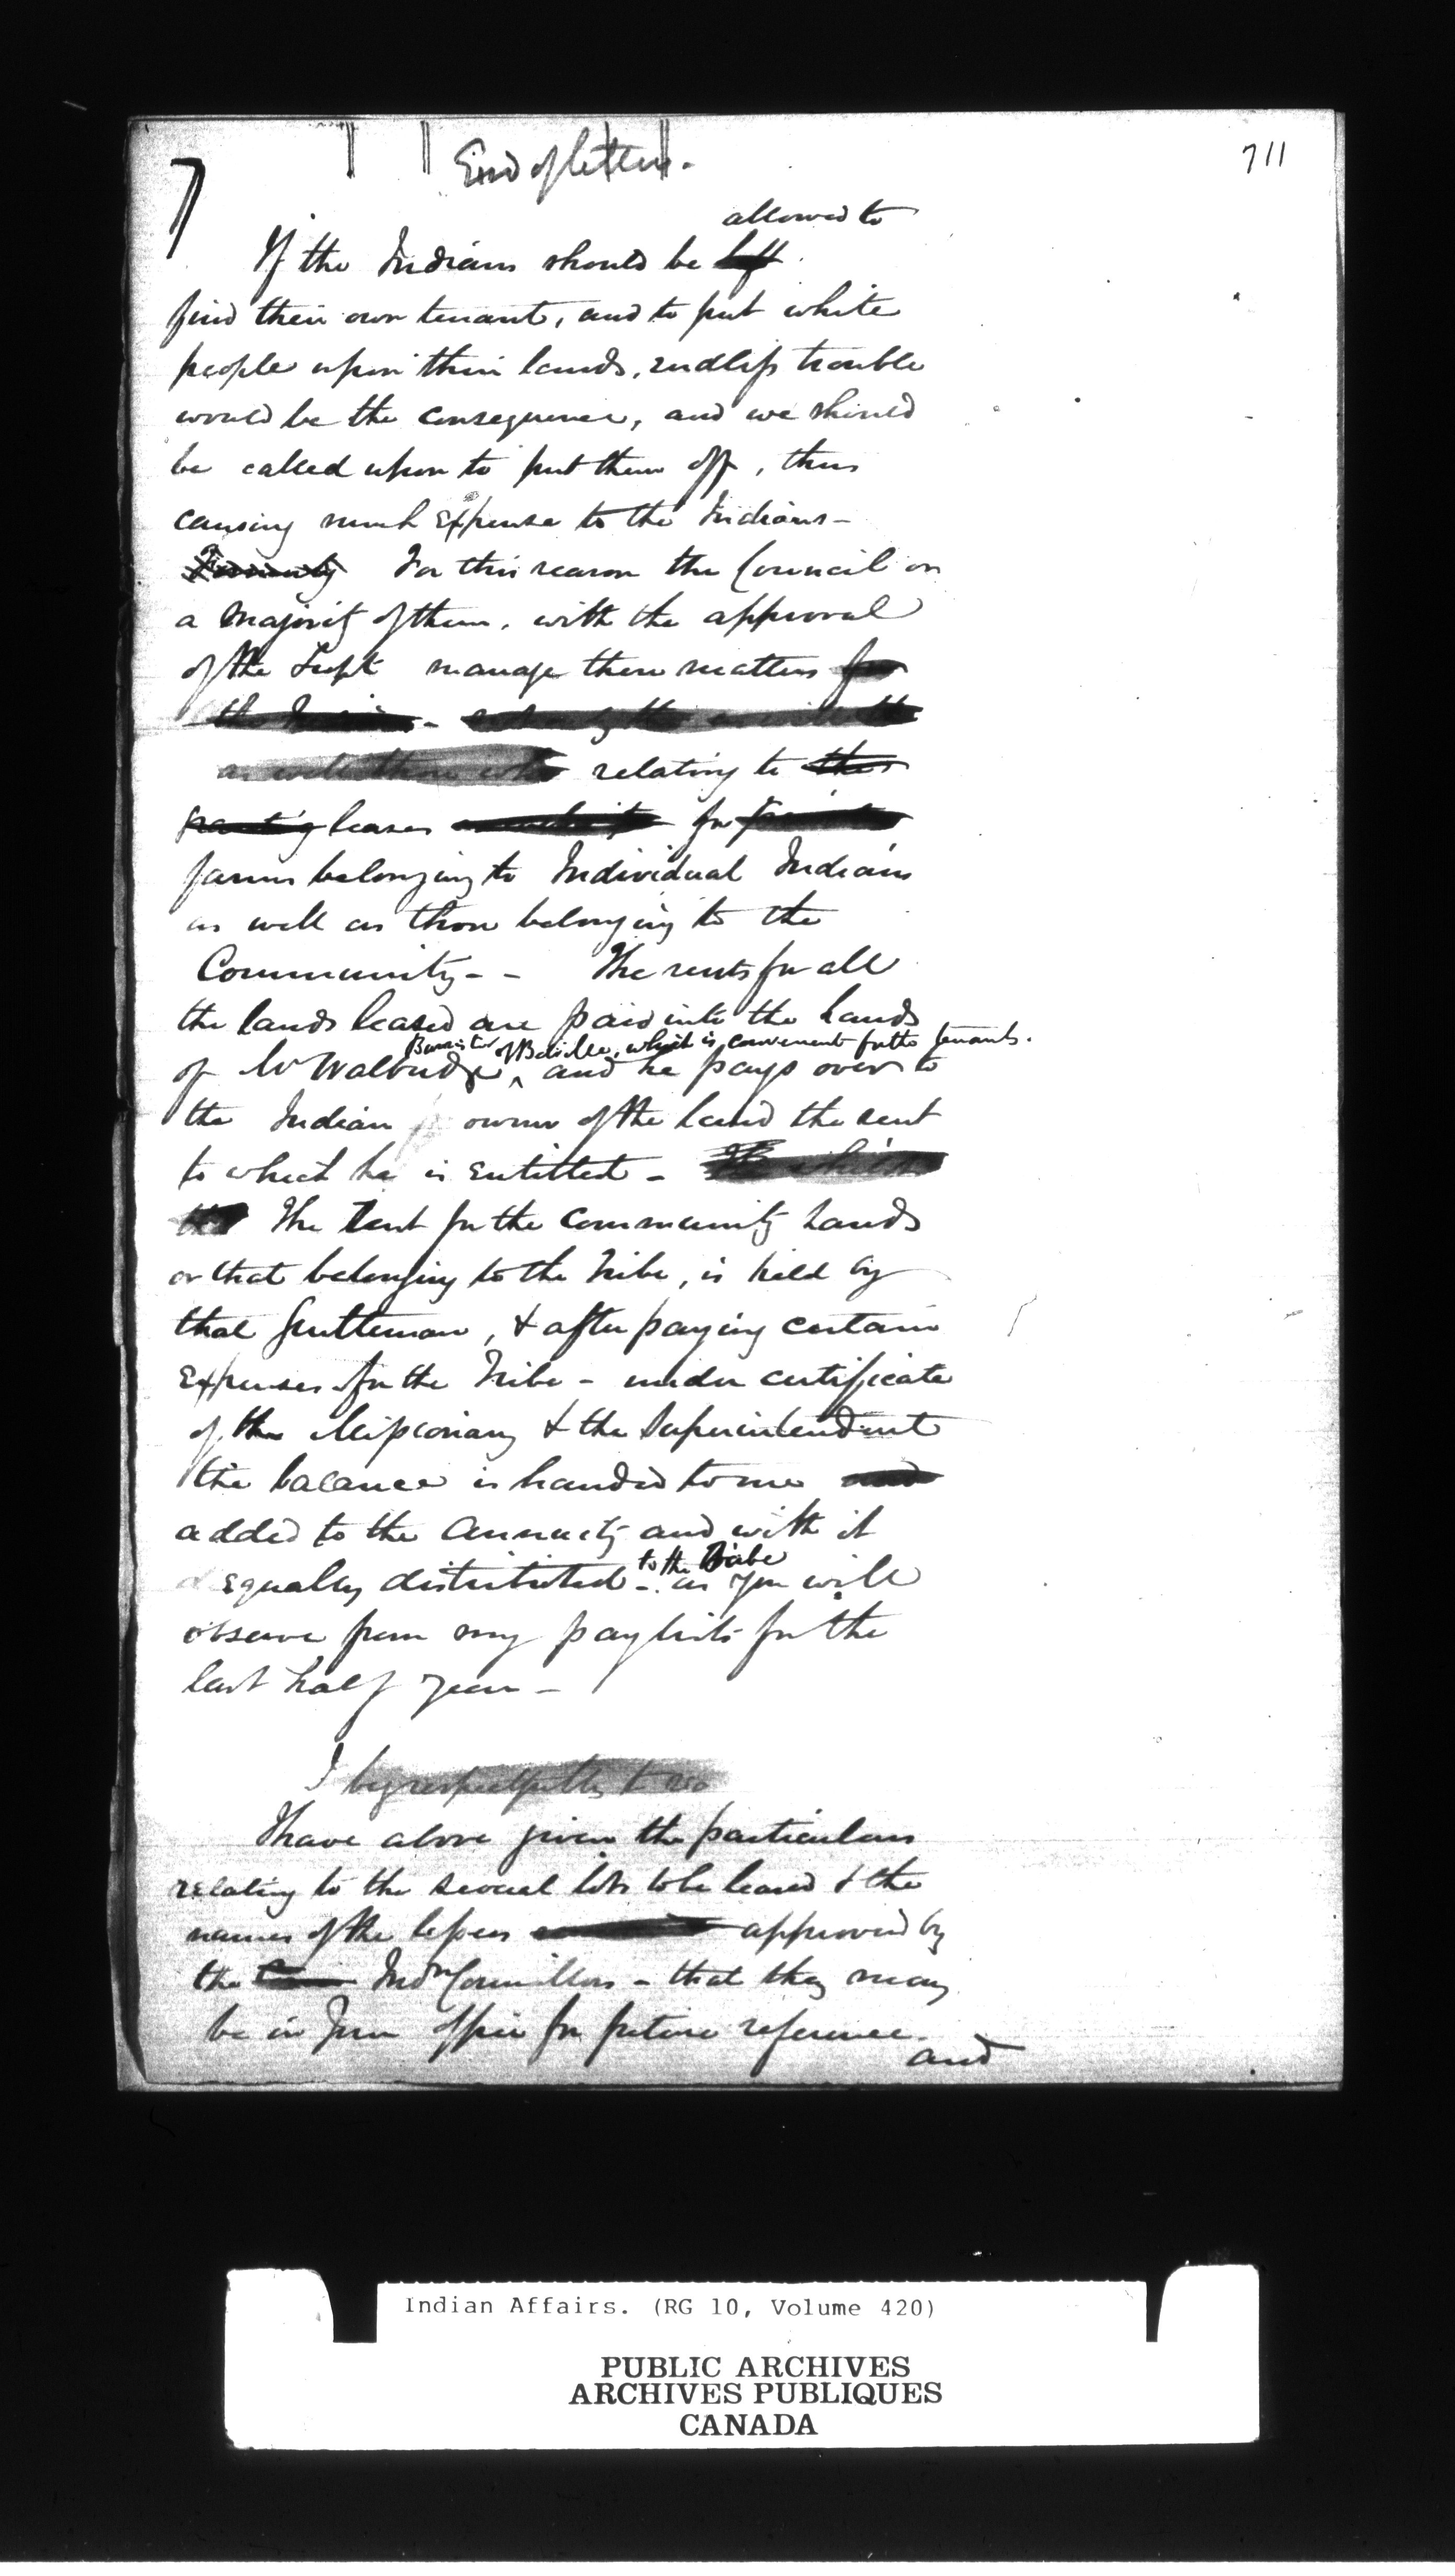 711
End of letter.
allowed to
If the Indians should be left
find their own tenants, and to put white
people upon their lands, endless trouble
would be the consequence, and we should
be called upon to put them off, thus
causing much expense to the Indians -
For this reason the Council or
a majority of them, with the approval
of the Supt manage these matters for
the Indians -
as well those who relating to the
granting leases for
farms belonging to Individual Indians
as well as those belonging to the
Community - - The rents for all
the lands leased are paid into the hands
Barrister of Belville, which is convenient for the tenants.
of Mr Walbridge ^ and he pays over to
the Indian owner of the land the rent
to which he is entitled -
The rent for the community lands
or that belonging to the Tribe, is held by
that Gentleman, & after paying certain
expenses for the Tribe - under certificate
of the Missionary & the Superintendent
the balance is handed to me and
added to the annuity and with it
to the Tribe
equally distributed - as you will
observe from my paylists for the
last half year -
I beg respectfully to
I have above given the particulars
relating to the several lots to be leased & the
names of the lessees approved by
the Indn Councillors - that they may
be in your office for future reference.
and
Indian Affairs. (RG 10, Volume 420)
PUBLIC ARCHIVES
ARCHIVES PUBLIQUES
CANADA